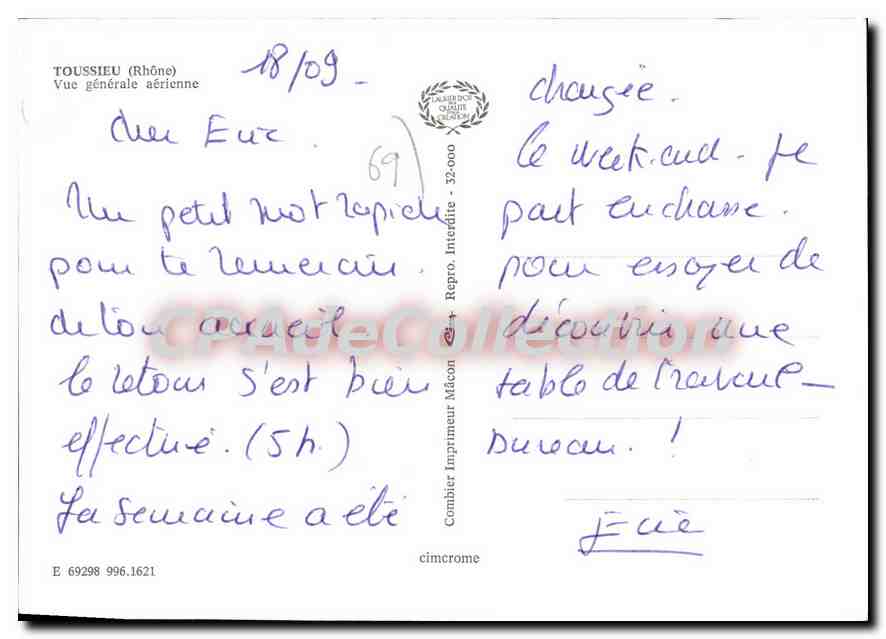 TOUSSIEU (Rhône)
Vue générale aérienne
18/09
Cher Eric.
69
Un petit mot rapide
pour te remercier.
de ton accueil.
le retour s'est bien
effectué. (5 h.)
La semaine a été
LAURIER D'OR
DE LA
QUALITE
CREATION
Combier Imprimeur Mâcon Repro. Interdite - 32-000
CPAdeCollection
chargée.
le week-end - je
part en chasse.
pour essayer de
découvrir une
table de travail -
bureau. !
cimcrome
E 69298 996.1621